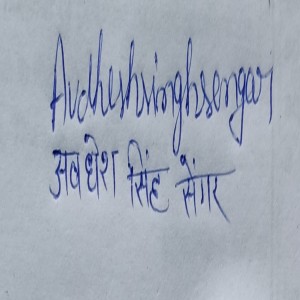 Avdheshsinghsengar
अवधेश सिंह सेंगर